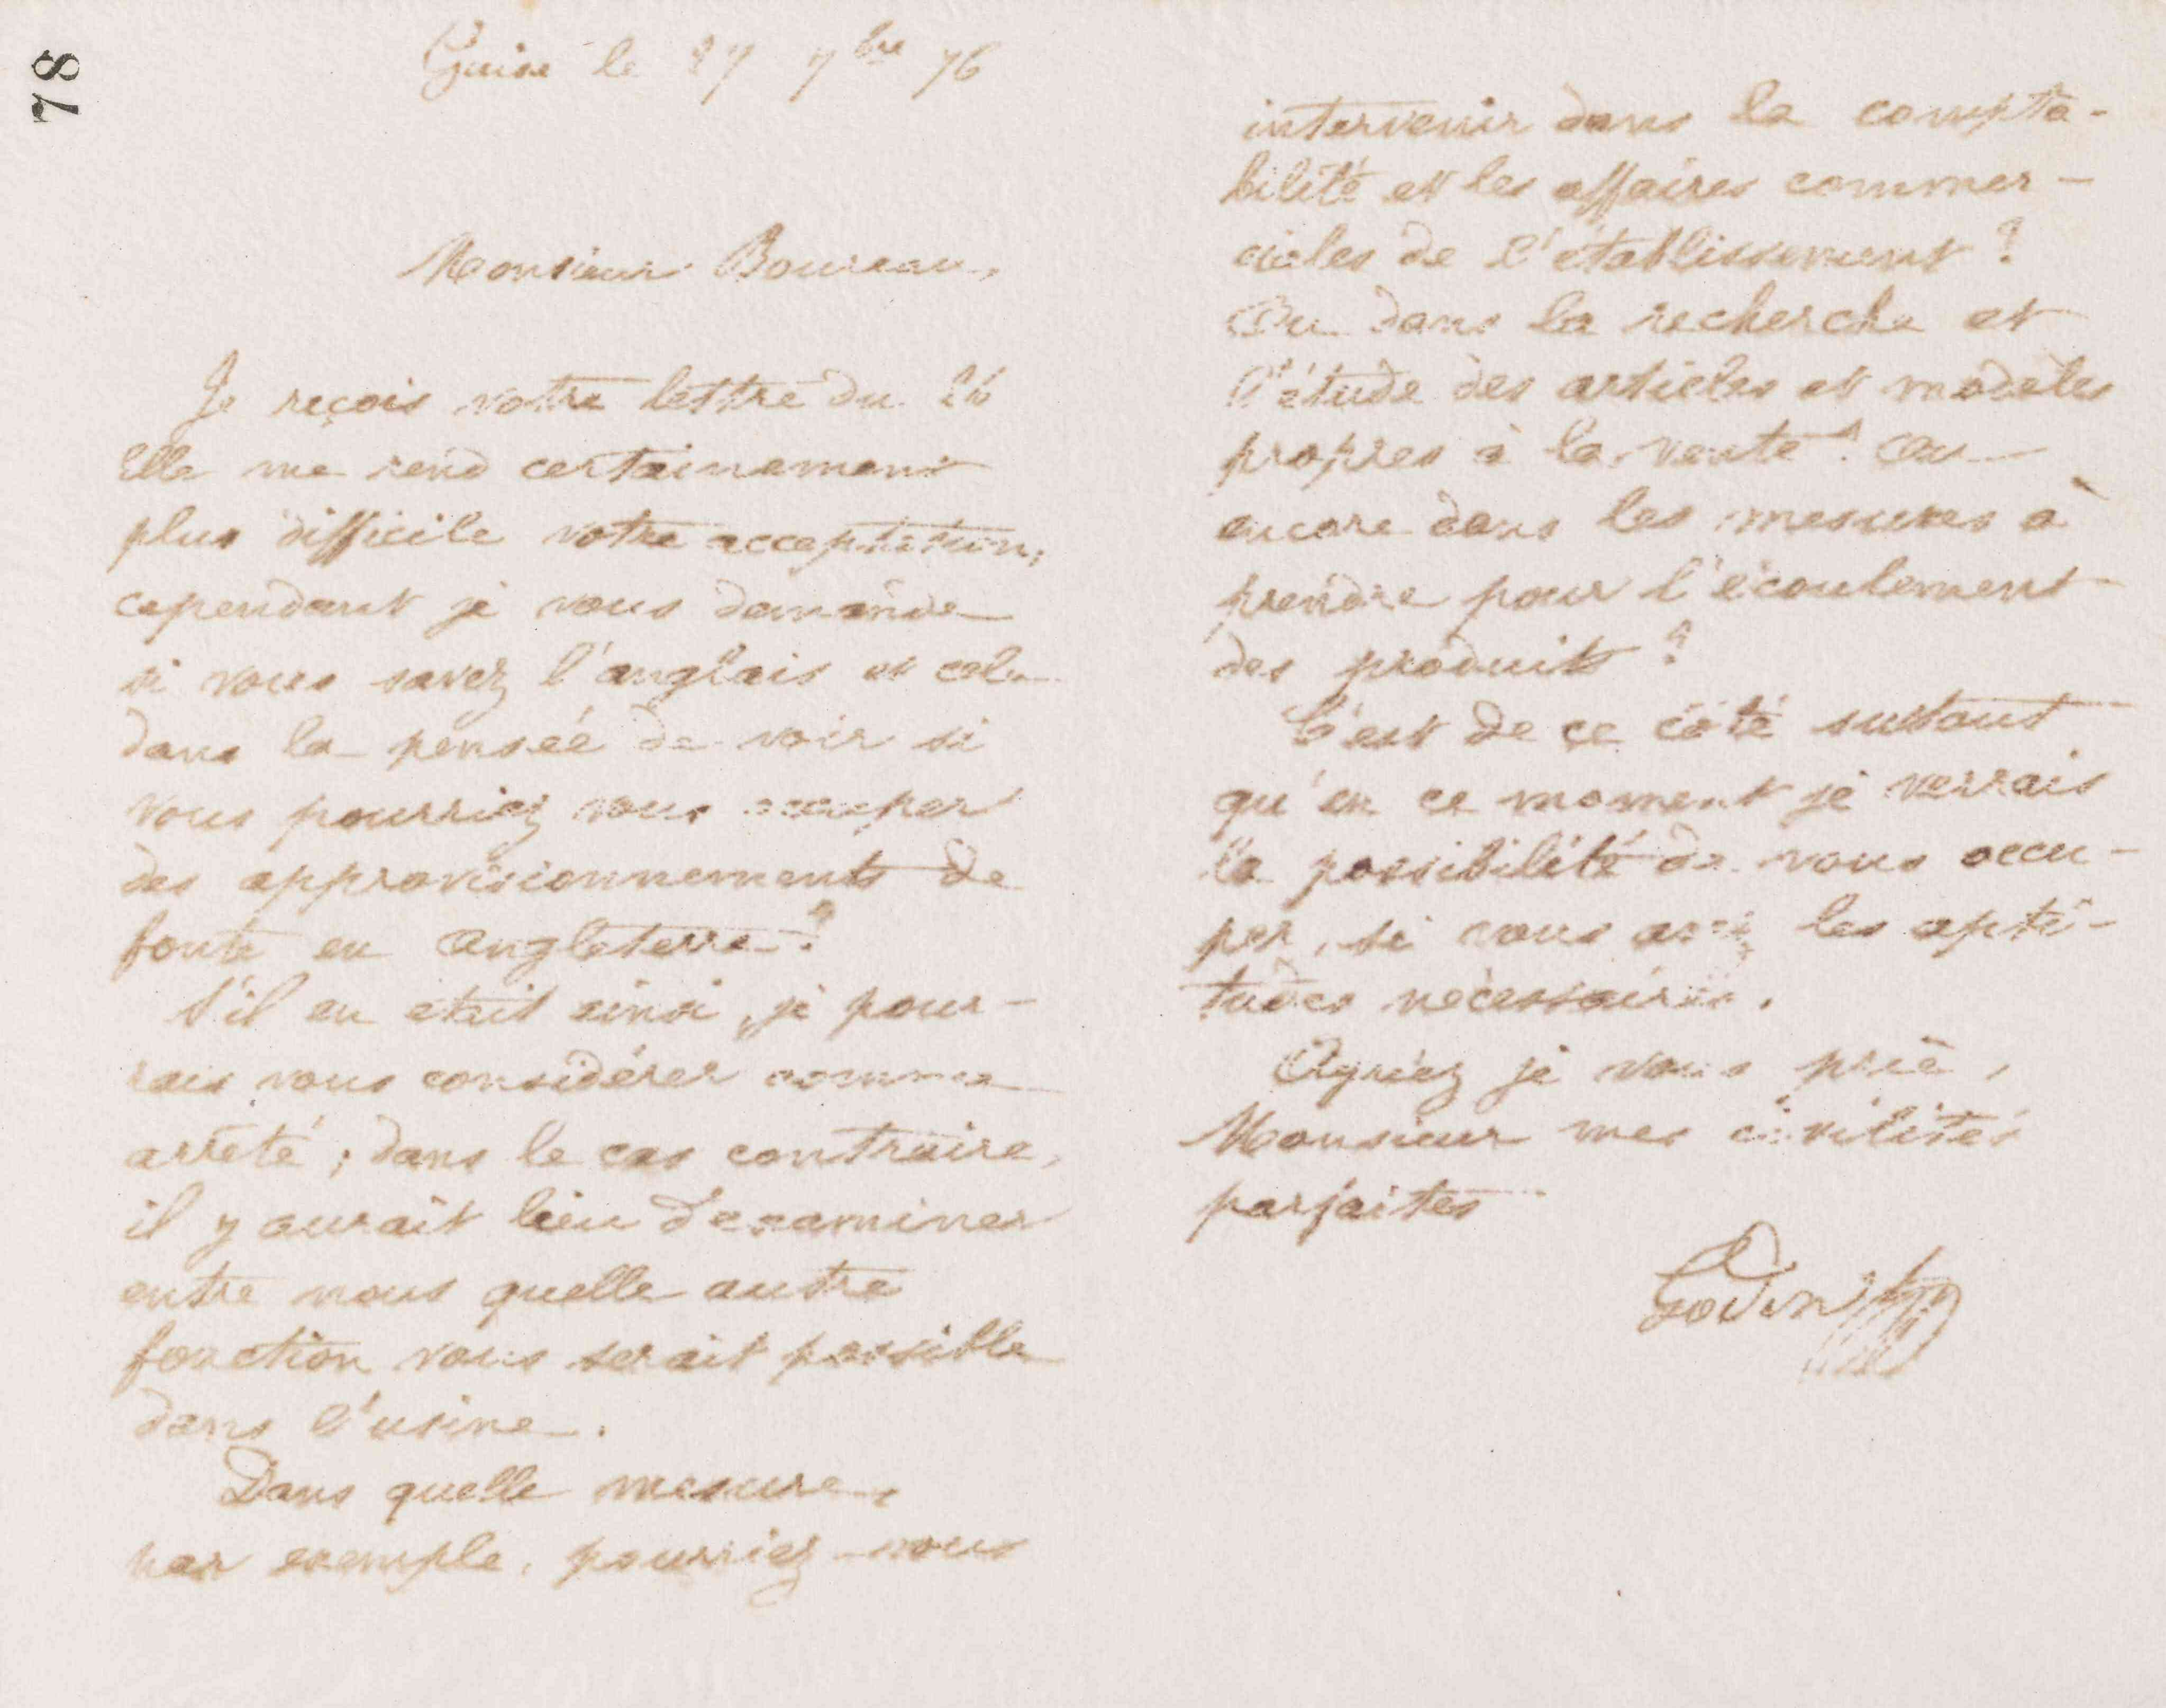 78
Guise le 27 7bre 76
Monsieur Boureau,
Je reçois votre lettre du 26
Elle me rend certainement
plus difficile votre acceptation;
cependant je vous demande
si vous savez l'anglais et cela
dans la pensée de voir si
vous pourriez vous occuper
des approvisionnements de
fonte en Angleterre ?
S'il en était ainsi, je pour-
rais vous considérer comme
arrêté ; dans le cas contraire,
il y aurait lieu d'examiner
entre nous quelle autre
fonction vous serait possible
dans l'usine.
Dans quelle mesure,
par exemple, pourriez-vous
intervenir dans la compta-
bilité et les affaires commer-
ciales de l'établissement ?
Ou dans la recherche et
l'étude des articles et modèles
propres à la vente ? Ou
encore dans les mesures à
prendre pour l'écoulement
des produits ?
C'est de ce côté surtout
qu'en ce moment je verrais
la possibilité de vous occu-
per, si vous avez les apti-
tudes nécessaires.
Agréez je vous prie,
Monsieur mes civilités
parfaites
Godin